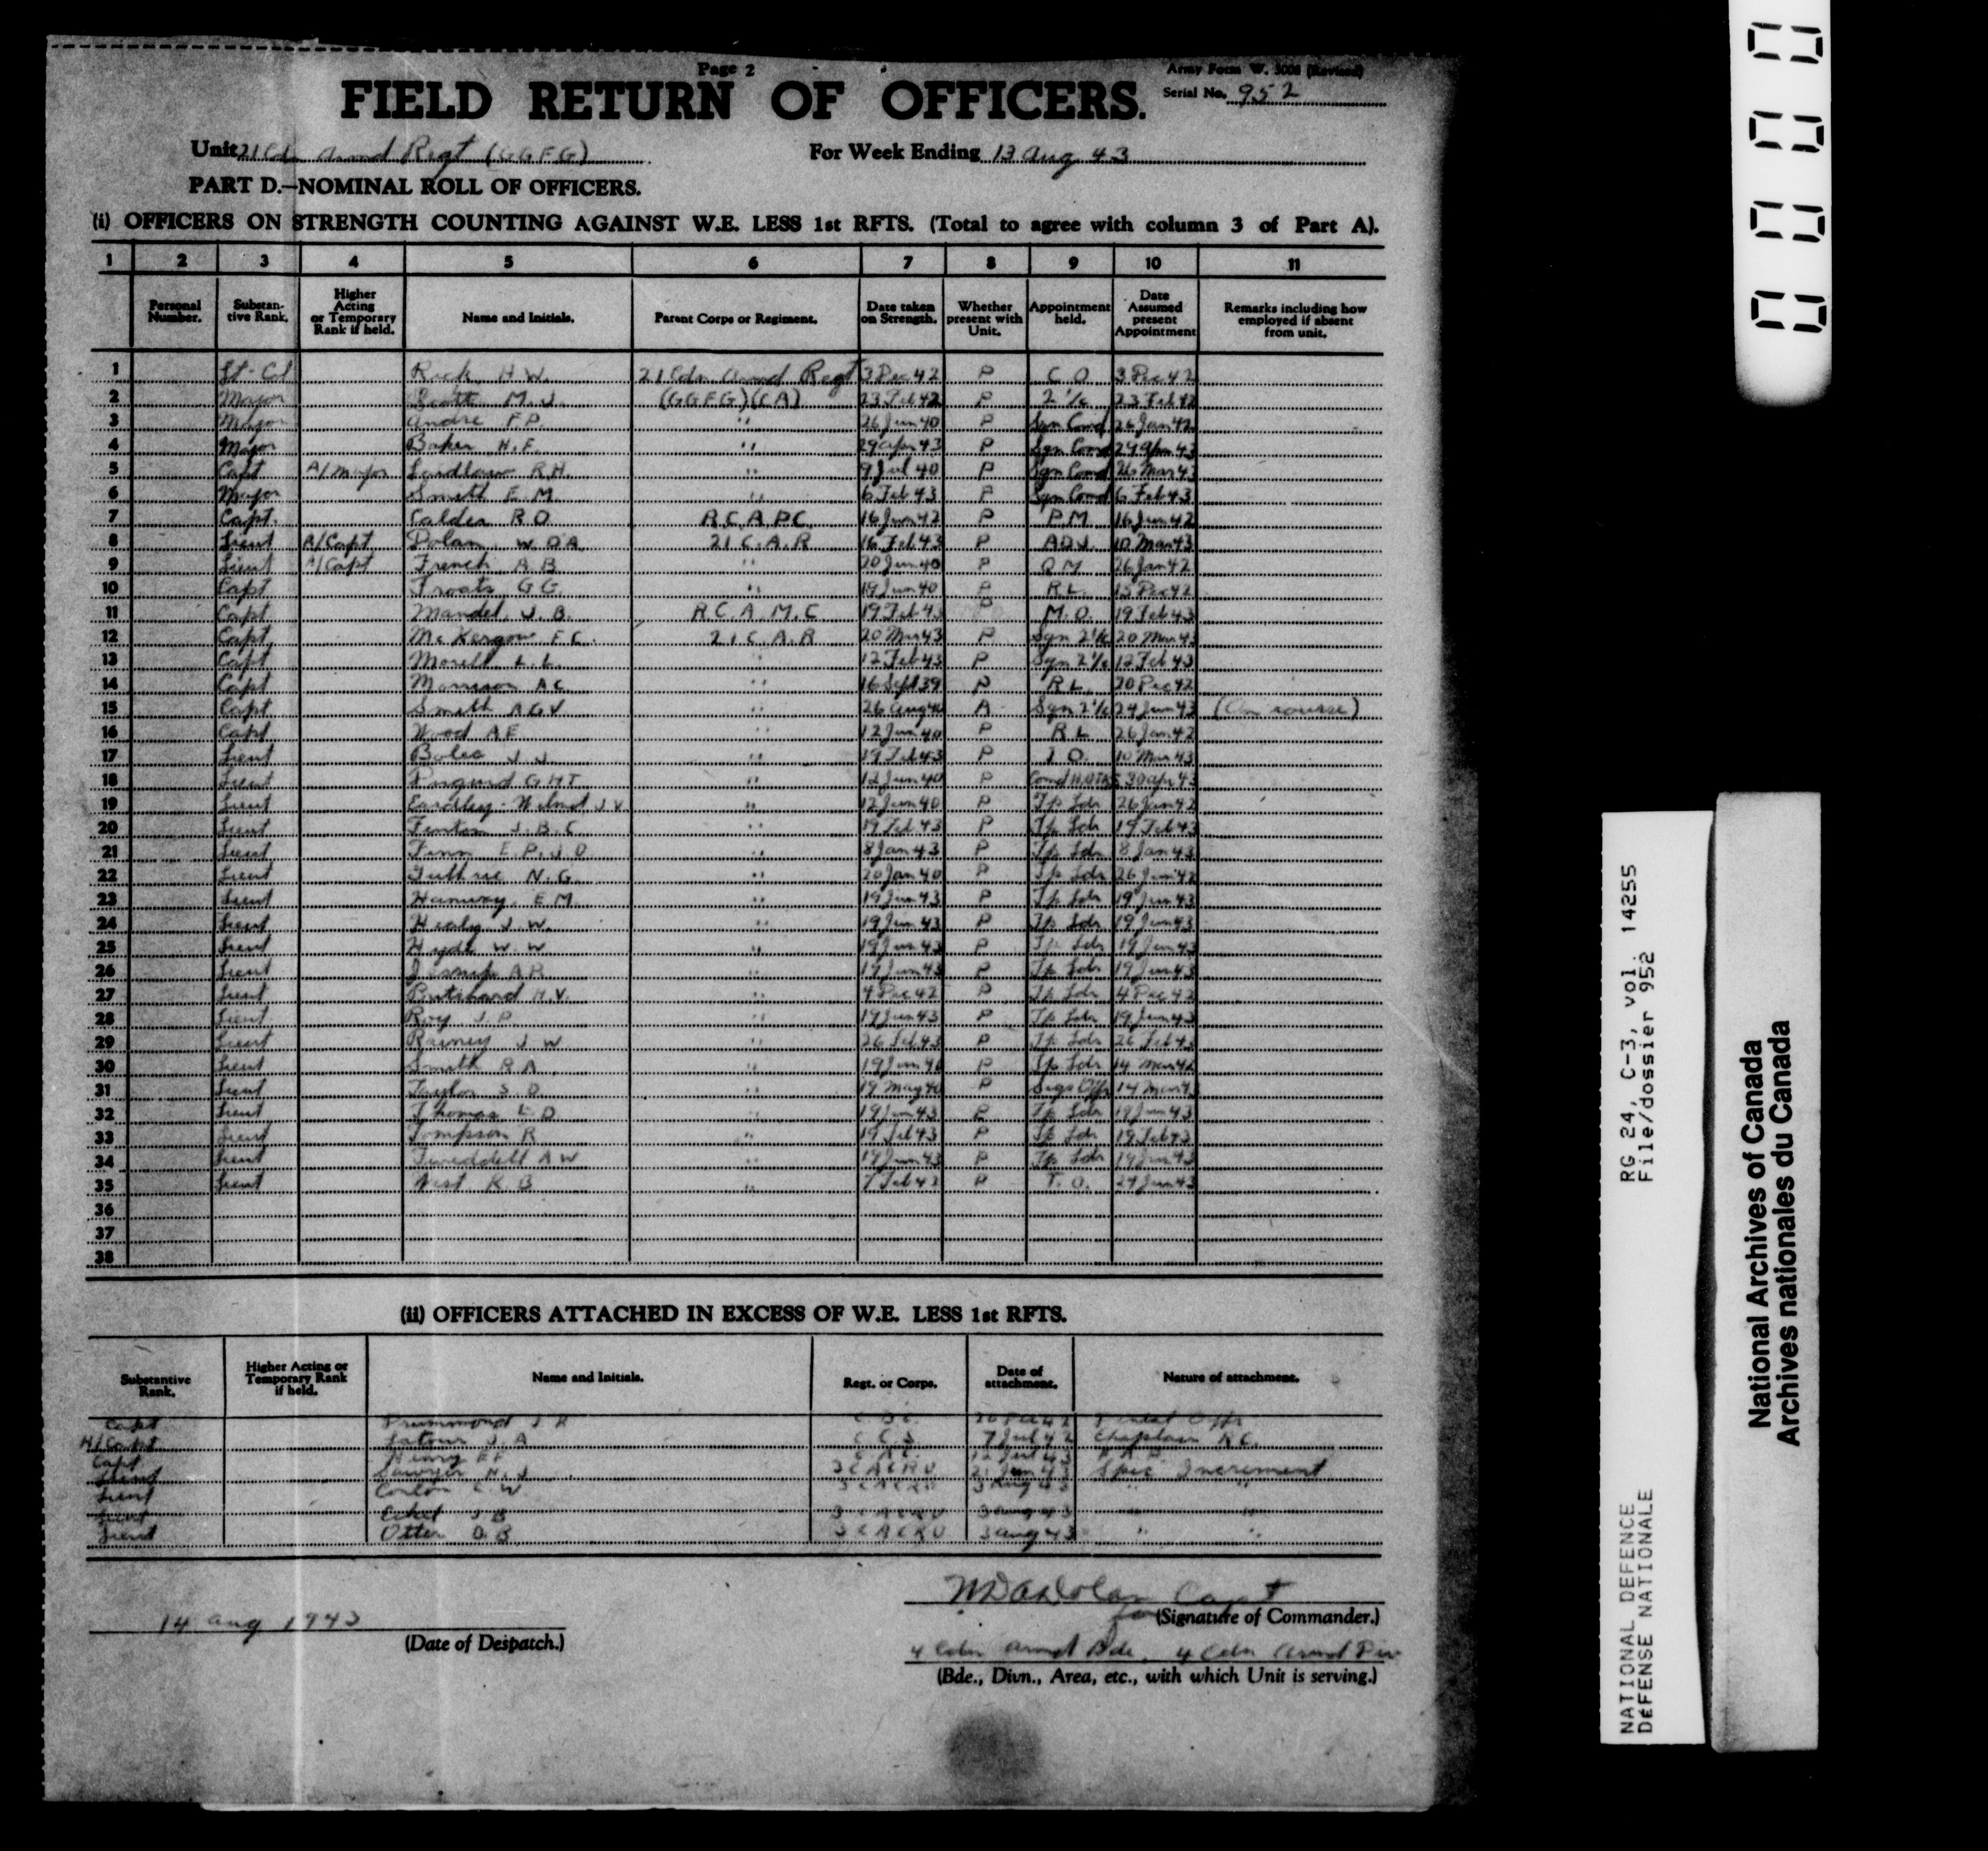 Page 2
Army Form W. 3008 (Revised)
FIELD RETURN OF OFFICERS.
Serial No. 952
Unit 21 Cdn Armd Regt (GGFG) For Week Ending 13 Aug 43
PART D.—NOMINAL ROLL OF OFFICERS.
(i) OFFICERS ON STRENGTH COUNTING AGAINST W.E. LESS 1st RFTS. (Total to agree with column 3 of Part A).
1 2 3 4 5 6 7 8 9 10 11
Personal Number. Substantive Rank. Higher Acting or Temporary Rank if held. Name and Initials. Parent Corps or Regiment. Date taken on Strength. Whether present with Unit. Appointment held. Date Assumed present Appointment Remarks including how employed if absent from unit.
1 Lt-Col H.W. 21 Cdn Armd Regt 3 Dec 42 P C O 3 Dec 42
2 Major Scott M.J. (GGFG)(CA) 23 Feb 42 P 2 i/c 23 Feb 42
3 Major Andre F.P. " 26 Jun 40 P Sqn Comd 26 Jan 42
4 Major Baker H.F. " 29 Apr 43 P Sqn Comd 29 Apr 43
5 Capt A/Major Laidlaw R.H. " 9 Jul 40 P Sqn Comd 26 Mar 43
6 Major Smith E.M. " 6 Feb 43 P Sqn Comd 6 Feb 43
7 Capt. Calder R O R.C.A.P.C. 16 Jun 42 P P.M. 16 Jun 42
8 Lieut A/Capt Dolan W.D.A. 21 C.A.R 16 Feb 43 P ADJ. 10 Mar 43
9 Lieut A/Capt French A.B. " 20 Jun 40 P Q M 26 Jan 42
10 Capt Froats G.G. " 19 Jun 40 P R.L. 15 Dec 42
11 Capt Mandel J.B. R.C.A.M.C 19 Feb 43 P M.O. 19 Feb 43
12 Capt McKergow F.C. 21 C.A.R 20 Mar 43 P Sqn 2 i/c 20 Mar 43
13 Capt Morell L.L. " 12 Feb 43 P Sqn 2 i/c 12 Feb 43
14 Capt Morrison A C " 16 Sept 39 P R L 20 Dec 42
15 Capt Smith A G V " 26 Aug 40 A Sqn 2 i/c 24 Jun 43 (On course)
16 Capt Wood A E " 12 Jun 40 P R L 26 Jan 42
17 Lieut J.J. " 19 Feb 43 P I O. 10 Mar 43
18 Lieut G H T " 12 Jun 40 P Comd 30 Apr 43
19 Lieut Eardley-Wilmot J.V. " 12 Jun 40 P Tp Ldr 26 Jan 42
20 Lieut Fenton J.B.C. " 19 Feb 43 P Tp Ldr 19 Feb 43
21 Lieut Finn E.P.J.O. " 8 Jan 43 P Tp Ldr 8 Jan 43
22 Lieut Guthrie N.G. " 20 Jan 40 P Tp Ldr 26 Jan 42
23 Lieut Hanway E M. " 19 Jun 43 P Tp Ldr 19 Jun 43
24 Lieut Healy J.W. " 19 Jun 43 P Tp Ldr 19 Jun 43
25 Lieut Hyde W.W " 19 Jun 43 P Tp Ldr 19 Jun 43
26 Lieut A R " 19 Jun 43 P Tp Ldr 19 Jun 43
27 Lieut Pritchard H.V. " 4 Dec 42 P Tp Ldr 4 Dec 42
28 Lieut Roy J.P. " 19 Jun 43 P Tp Ldr 19 Jun 43
29 Lieut J W " 26 Feb 43 P Tp Ldr 26 Feb 43
30 Lieut Smith R A " 19 Jun 40 P Tp Ldr 14 Mar 42
31 Lieut Taylor S.D. " 19 May 40 P Sigs Offr 14 Mar 43
32 Lieut Thomas L.D. " 19 Jun 43 P Tp Ldr 19 Jun 43
33 Lieut Tompson R " 19 Feb 43 P Tp Ldr 19 Feb 43
34 Lieut Tweddell A W " 19 Jun 43 P Tp Ldr 19 Jun 43
35 Lieut West K.B " 7 Feb 42 P T.O. 24 Jun 43
36
37
38
(ii) OFFICERS ATTACHED IN EXCESS OF W.E. LESS 1st RFTS.
Substantive Rank. Higher Acting or Temporary Rank if held. Name and Initials. Regt. or Corps. Date of attachment. Nature of attachment.
Capt Drummond J.R C.D.C. Dental Offr
H/Capt Latour J.A C C S 7 Jul 42 Chaplain RC.
Capt Henry
Lieut Sawyer H.J 3 CACRU 21 Jun 43 Spec Increment
Lieut Conlon 3 CACRU 3 Aug 43 " "
Lieut J B 3 CACRU 3 Aug 43 " "
Lieut Otter D B 3 CACRU 3 Aug 43 " "
14 Aug 1943
(Date of Despatch.)
WDADolan Capt
for (Signature of Commander.)
4 Cdn Armd Bde, 4 Cdn Armd Div
(Bde., Divn., Area, etc., with which Unit is serving.)
0000
RG 24, C-3, vol. 14255
File/dossier 952
NATIONAL DEFENCE
DéFENSE NATIONALE
National Archives of Canada
Archives nationales du Canada